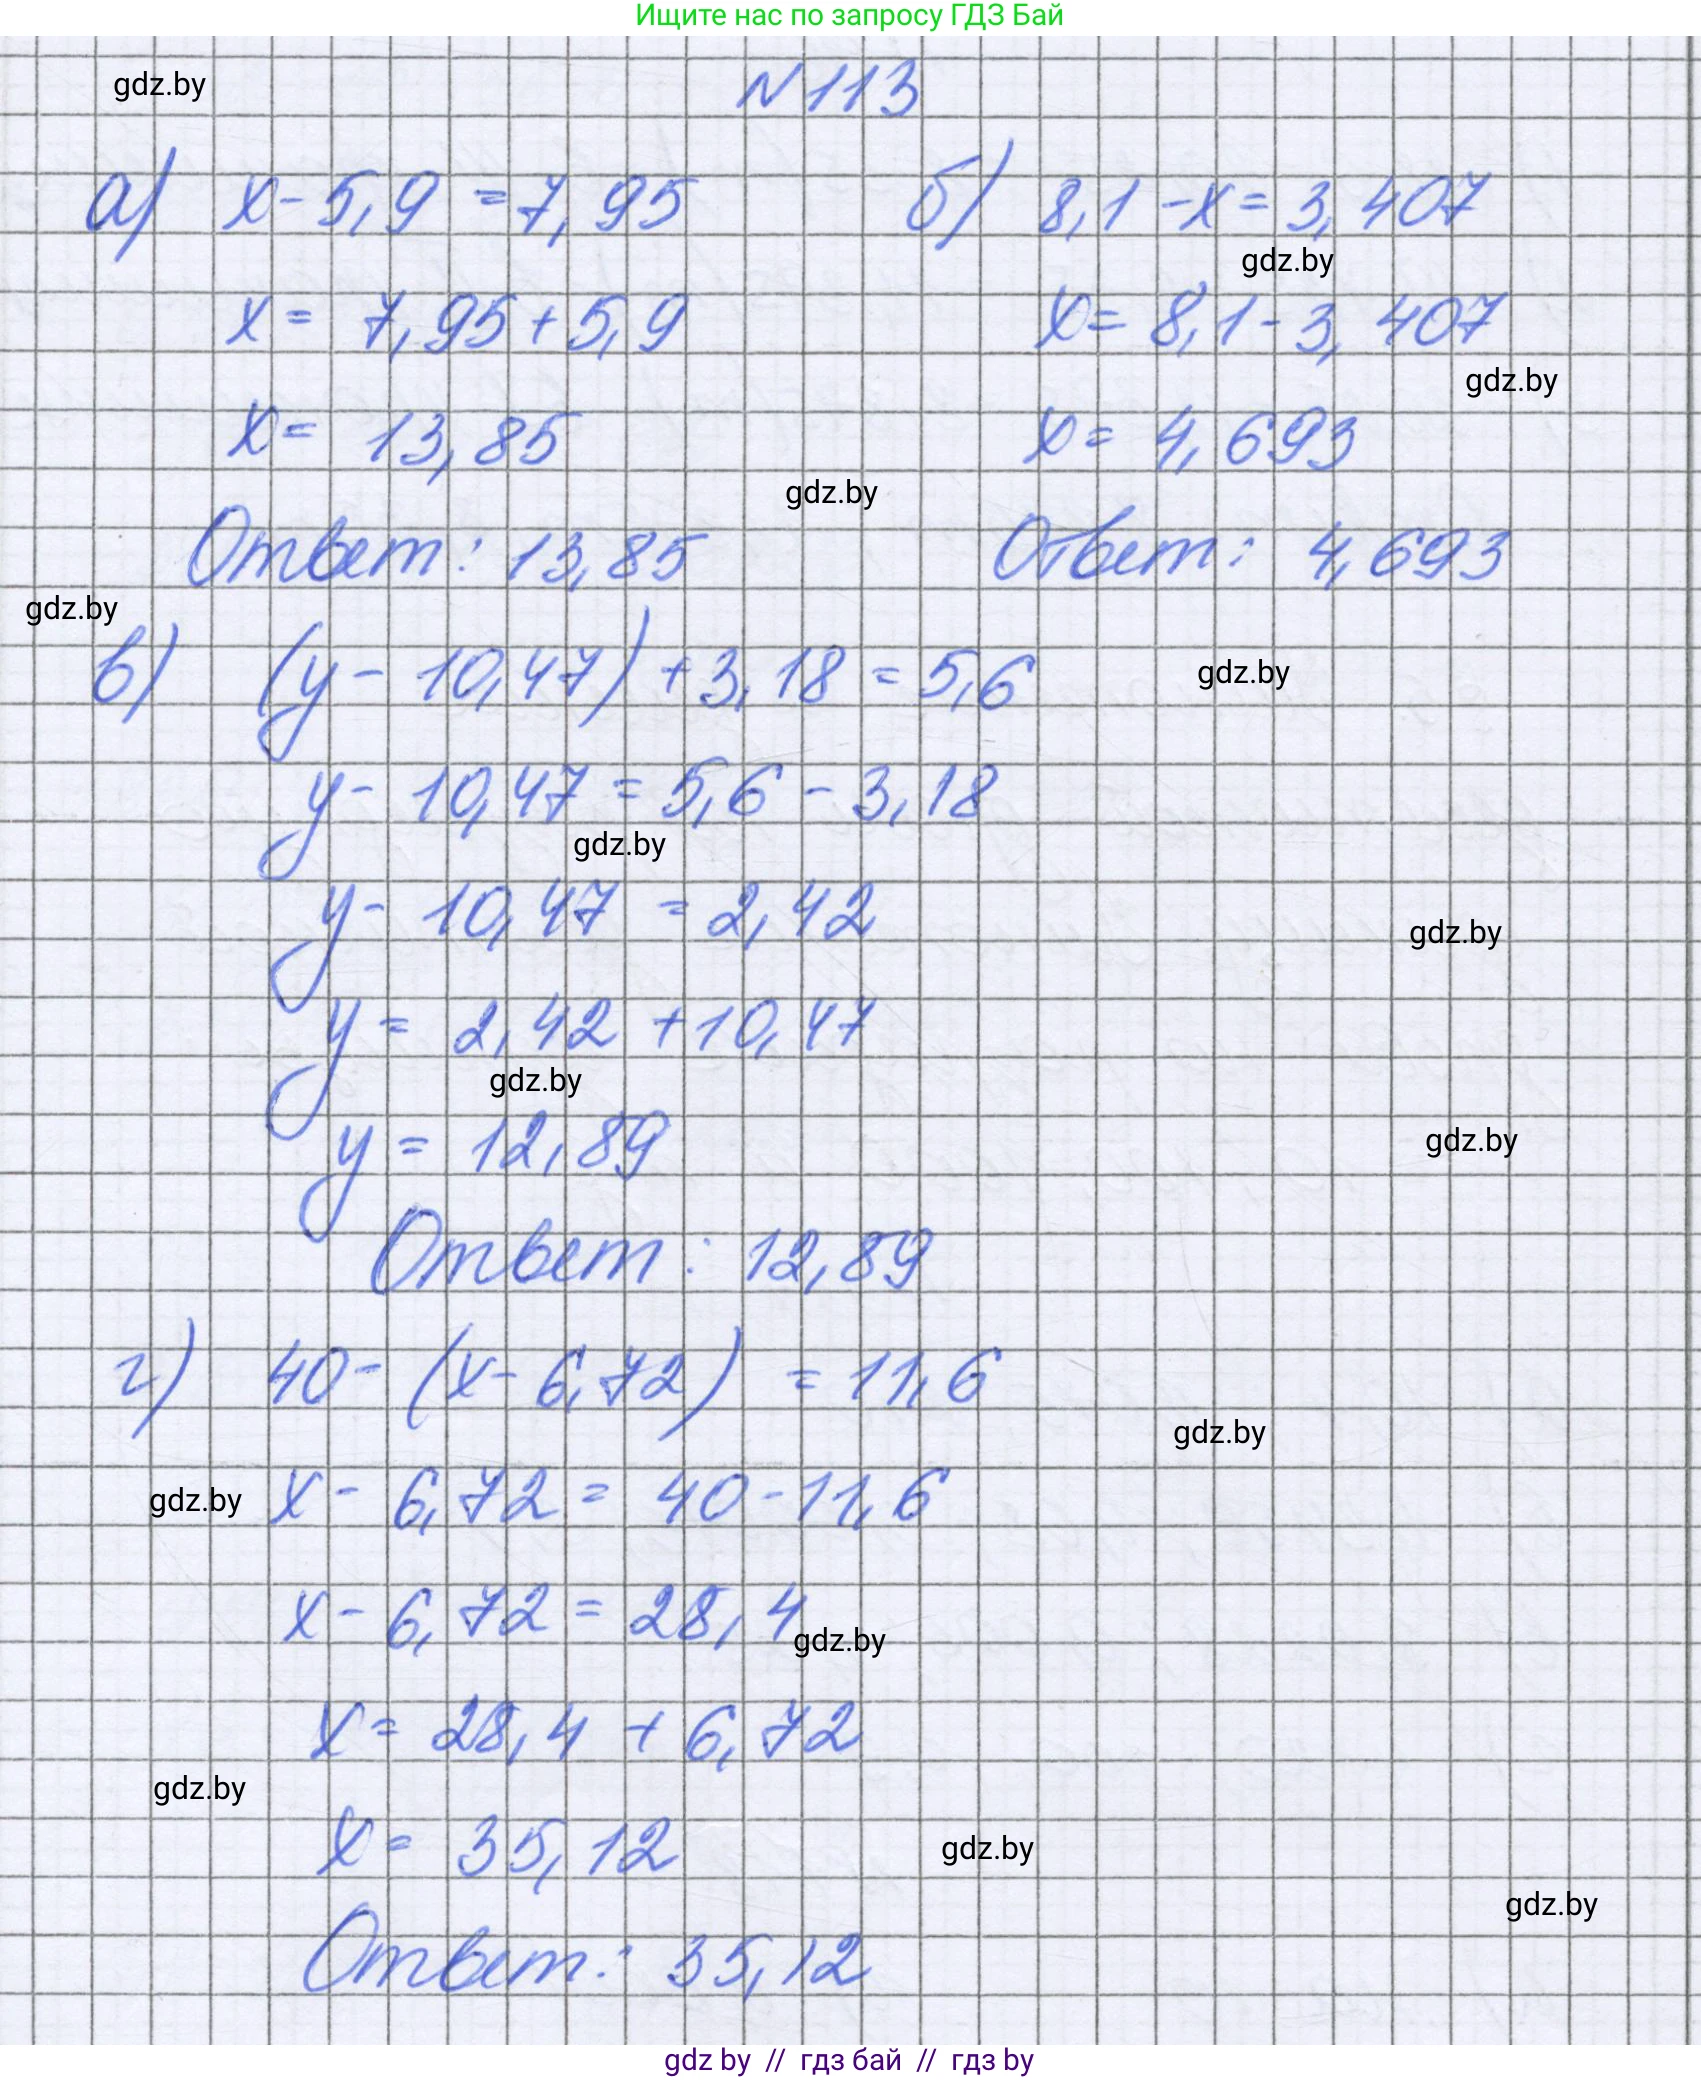 Ищите нас по запросу ГДЗ Бай
gdz.by
N113
а) x - 5,9 = 7,95
б) 8,1 - x = 3,407
gdz.by
x = 7,95 + 5,9
x = 8,1 - 3,407
gdz.by
x = 13,85
x = 4,693
gdz.by
Ответ: 13,85
Ответ: 4,693
gdz.by
в) (y - 10,47) + 3,18 = 5,6
gdz.by
y - 10,47 = 5,6 - 3,18
gdz.by
y - 10,47 = 2,42
gdz.by
y = 2,42 + 10,47
gdz.by
y = 12,89
gdz.by
Ответ: 12,89
г) 40 - (x - 6,72) = 11,6
gdz.by
x - 6,72 = 40 - 11,6
gdz.by
x - 6,72 = 28,4
gdz.by
x = 28,4 + 6,72
gdz.by
x = 35,12
gdz.by
gdz.by
Ответ: 35,12
gdz by // гдз бай // гдз by